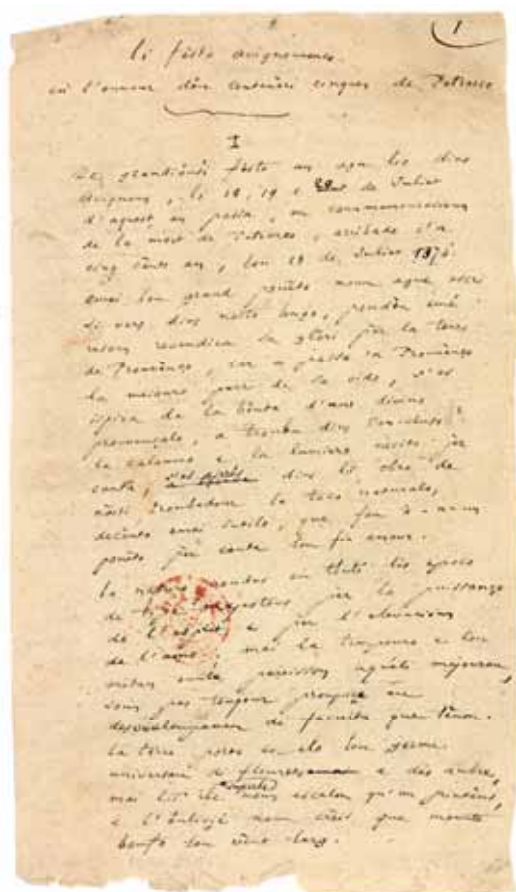 1
li fèsto avignounenco
en l'ounour dóu centenàri cinquen de Petrarco
I
De grandìssi fèsto an agu liò dins
Avignoun, li 18, 19 e 20 de Juliet
d'aquest an passa, en coumemouracioun
de la mort de Petrarco, arribado i'a
cinq cènts an, lou 18 de Juliet 1374.
emai lou grand pouèto noun ague escri
si vers dins nosto lengo, poudèn emé
resoun revendica sa glòri pèr la terro
de Prouvènço, car a passa en Prouvènço
la majouro part de sa vido, s'es
ispira de la bèuta d'uno divino
prouvençalo, a trouba dins Vaucluso
la calamo e la lumiero
canta, dins lis obro de
nòsti troubadour la toco naturalo,
decènto emai sutilo, que fau à-n-un
pouèto pèr canta lou fin amour.
La naturo en tóuti lis epoco
de pèr la puissanço
de l'esprit e pèr l'elevacioun
de l'amo; mai la e lou
mitan mounte pareisson aquéli majourau,
soun pas toujour prouprice au
desvouloupamen di faculta que tènon.
La terro porto en elo lou germe
universau di e dis aubre,
mai li noun escalon qu'en printèms,
e l'èulivié noun crèis que mounte
boufo lou vènt larg.